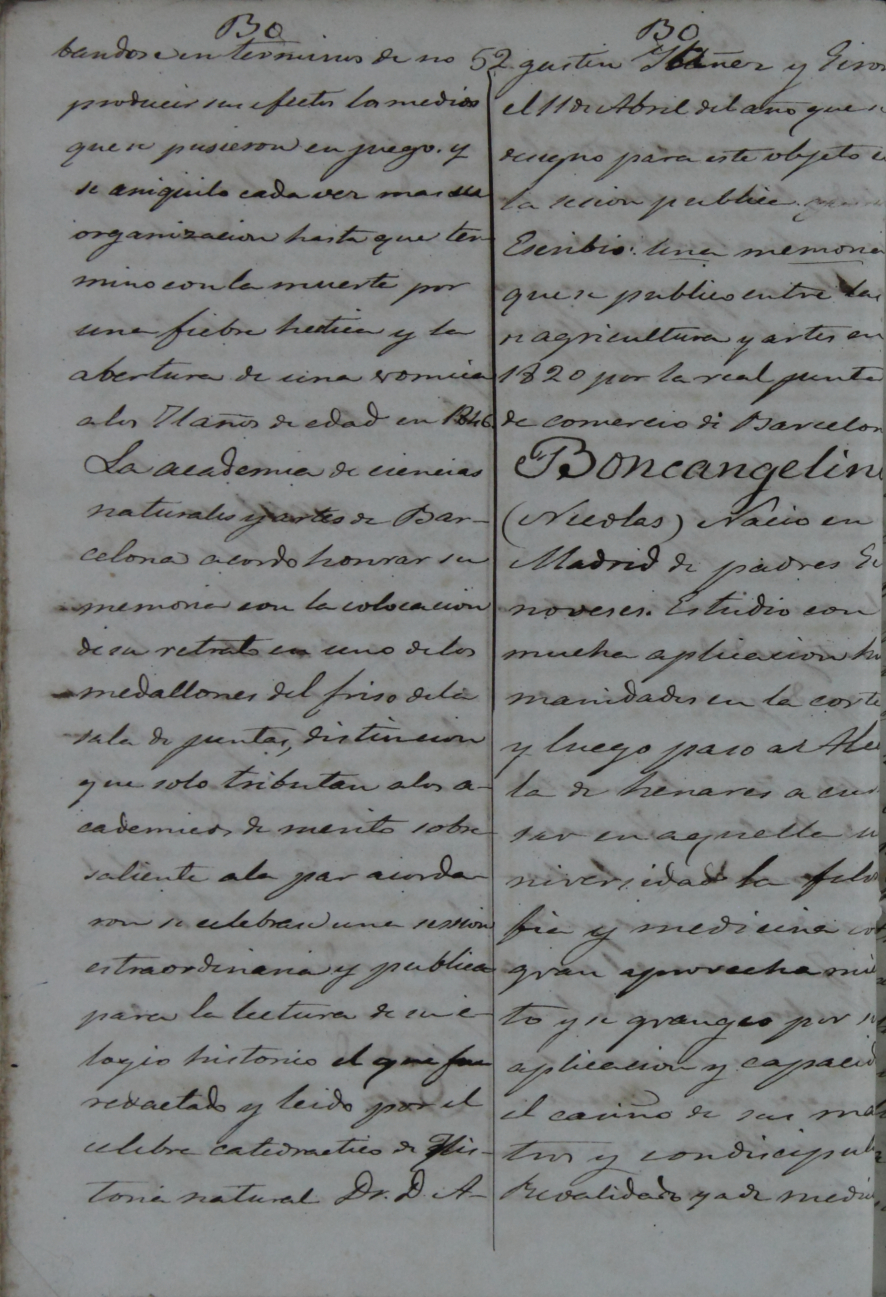 Bo
bandose en terminos de no
producir sus efectos los medios
que se pusieron en juego. y
se aniquilo cada vez mas su
organizacion hasta que ter-
mino con la muerte por
una fiebre hectica y la
abertura de una vomica
a los 71 años de edad en 1846
La academia de ciencias
naturales y artes de Bar-
celona acordo honrar su
memoria con la colocacion
de su retrato en uno de los
medallones del friso de la
sala de juntas, distincion
que solo tributan a los a-
cademicos de merito sobre
saliente a la par acorda-
ron se celebrase una session
estraordinaria y publica
para la lectura de su e-
logio historico el que fue
redactado y leido por el
celebre catedractico de His-
toria natural Dr. D. A-
52
Bo
gustin Ybañez y Giro
el 11 de Abril del año que se
designo para este objeto e
la sesion publica
Escribio: Una memoria
que se publico entre las
de agricultura y artes en
1820 por la real junta
de comercio di Barcelon
Boncangelin
(Nicolas) Nacio en
Madrid de padres Ge
noveses. Estudio con
mucha aplicacion hu
manidades en la corte
y luego paso a Alca
la de henares a cur
sar en aquella u
niversidad la filoso
fia y medicina con
gran aprovechamien
to y se grangeo por su
aplicacion y capacid
el cariño de sus ma
tros y condiscipulo
Revalidado ya de medi